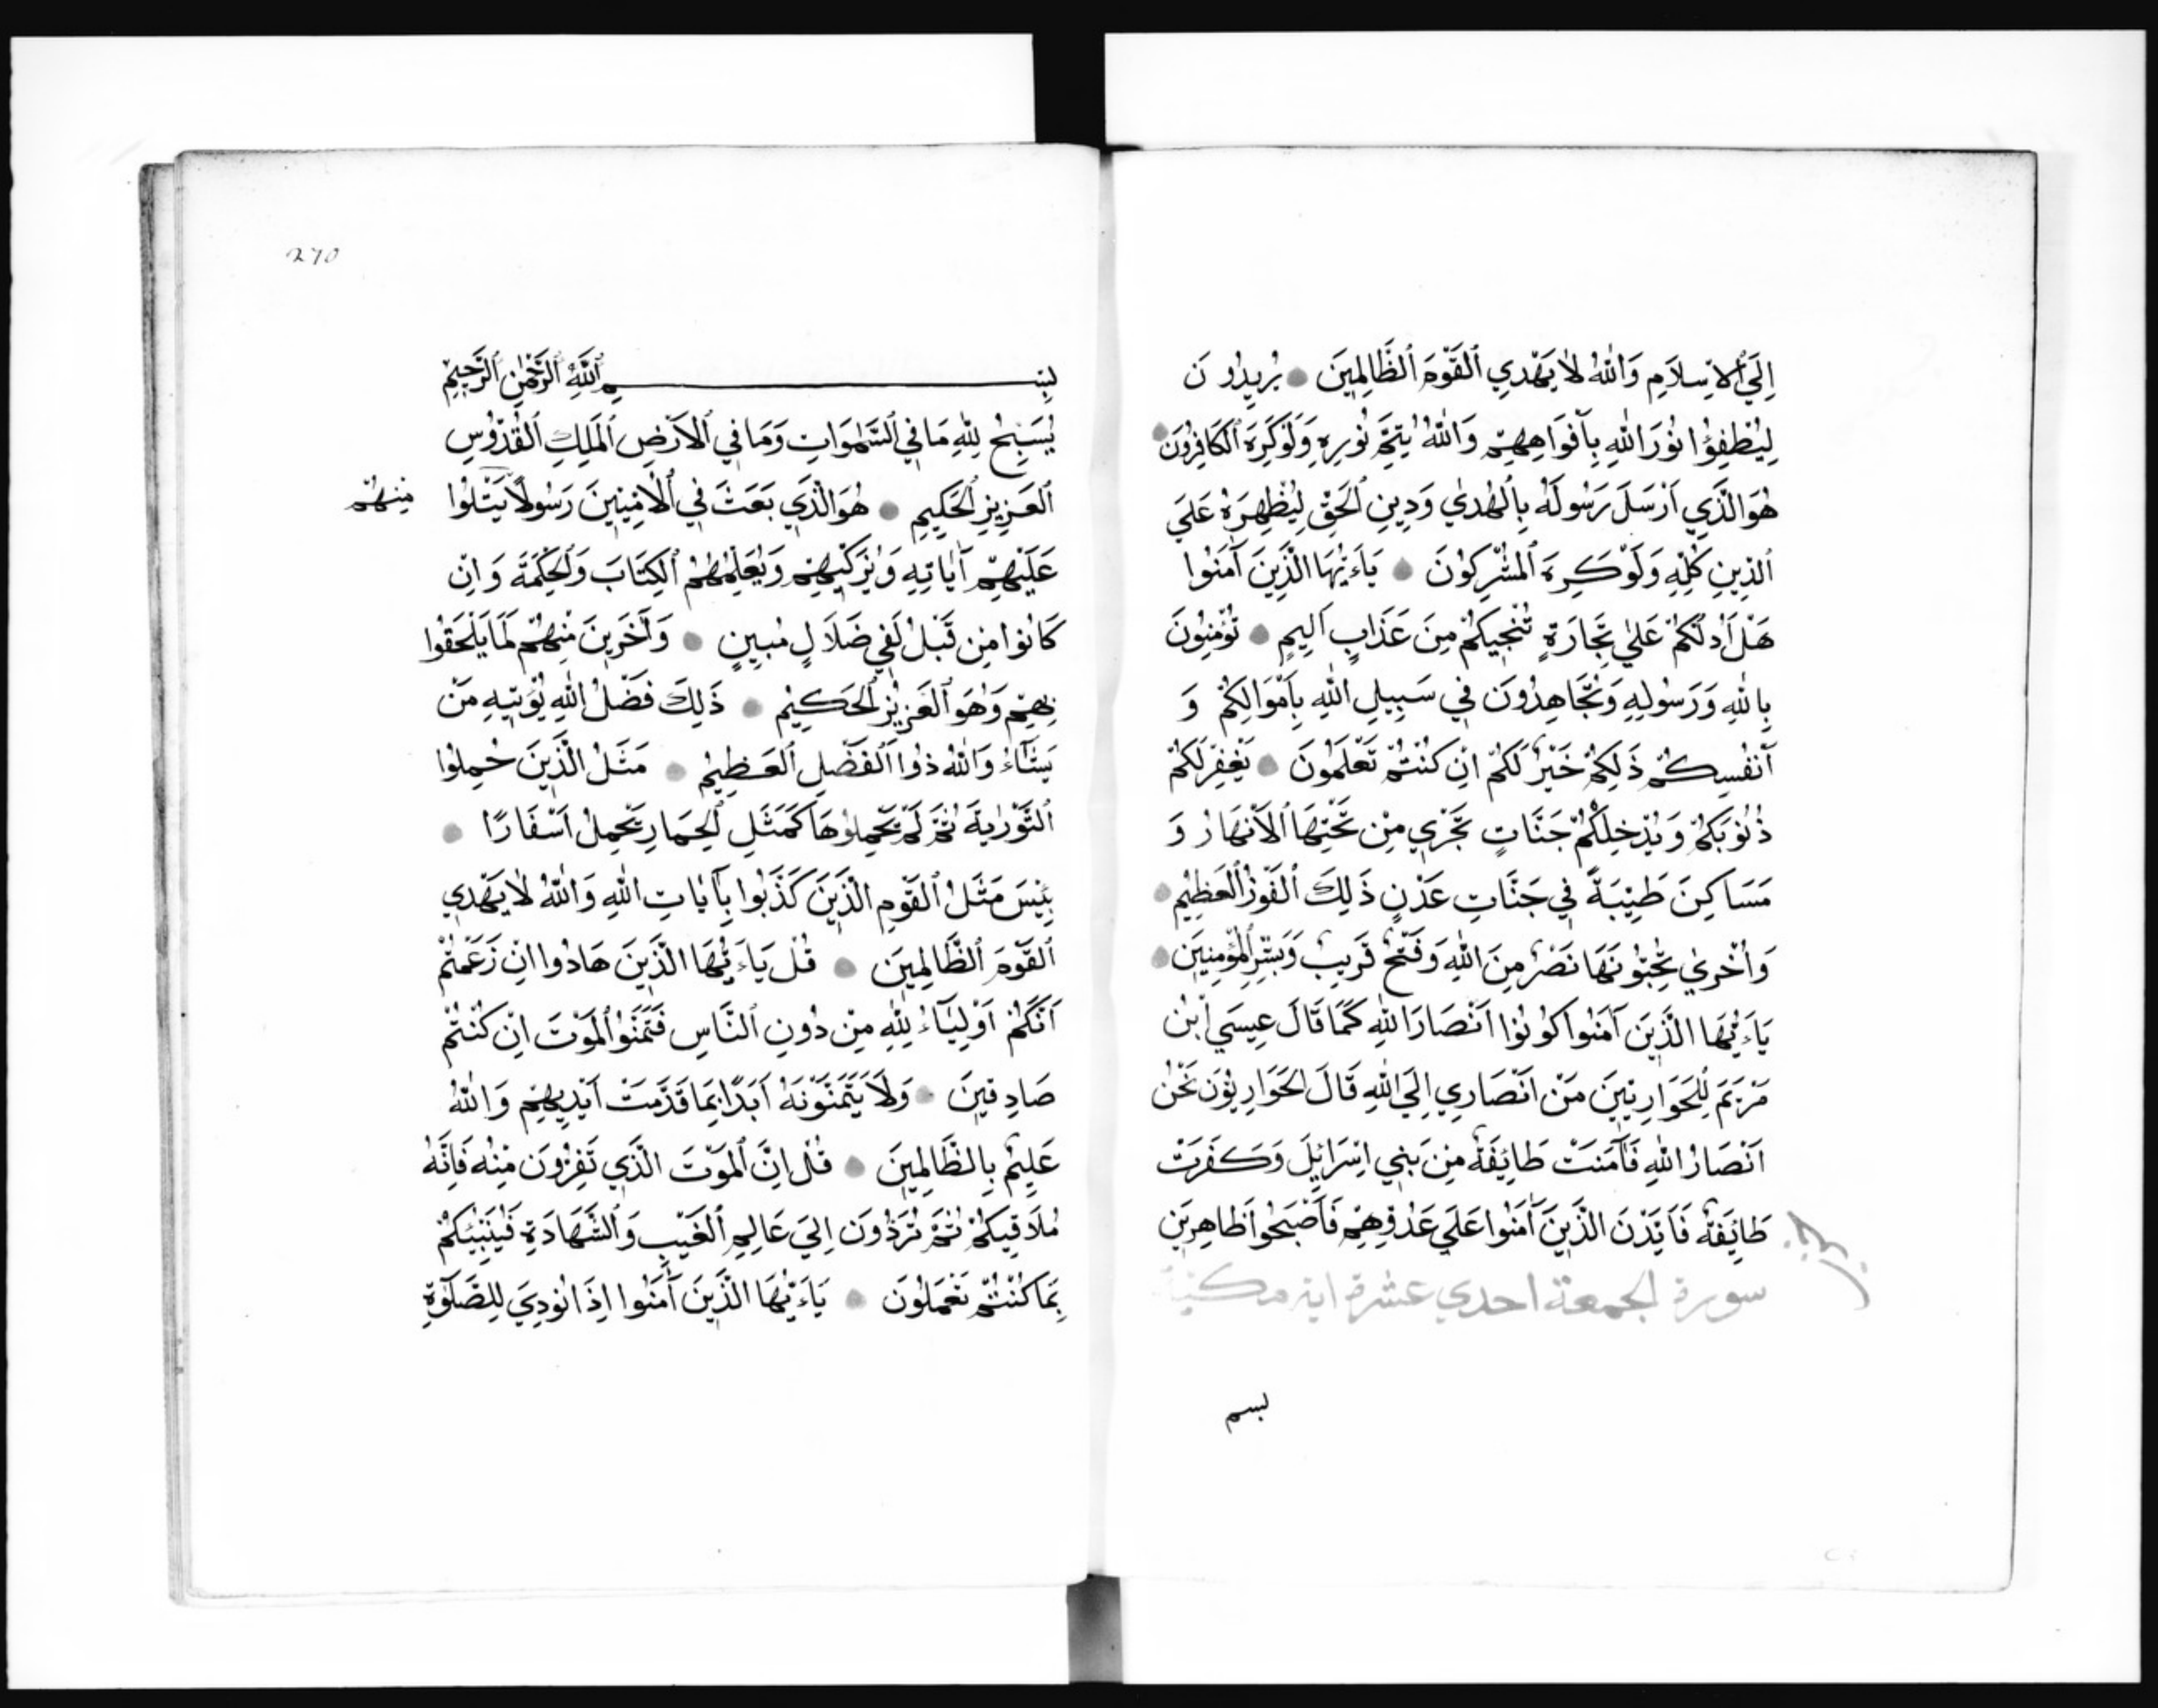 إِلَى ٱلْاِسْلَامِ وَاللّٰهُ لَا يَهْدِي ٱلْقَوْمَ ٱلظَّالِمِينَ ● يُرِيدُونَ
لِيُطْفِؤُا نُورَ اللّٰهِ بِأَفْوَاهِهِمْ وَاللّٰهُ يُتِمُّ نُورِهِ وَلَوْ كَرِهَ ٱلْكَافِرُونَ ●
هُوَ الَّذِي اَرْسَلَ رَسُولَهُ بِالْهُدٰي وَدِينِ ٱلْحَقِّ لِيُظْهِرَهُ عَلَي
ٱلدِّينِ كُلِّهِ وَلَوْ كَرِهَ ٱلْمُشْرِكُونَ ● يَاءَيُّهَا الَّذِينَ آمَنُوا
هَلْ اَدُلُّكُمْ عَلٰي تِجَارَةٍ تُنْجِيكُمْ مِنْ عَذَابٍ اَلِيمٍ ● تُؤْمِنُونَ
بِاللّٰهِ وَرَسُولِهِ وَتُجَاهِدُونَ فِي سَبِيلِ اللّٰهِ بِاَمْوَالِكُمْ وَ
اَنْفُسِكُمْ ذَلِكُمْ خَيْرٌ لَكُمْ اِنْ كُنْتُمْ تَعْلَمُونَ ● يَغْفِرْ لَكُمْ
ذُنُوبَكُمْ وَيُدْخِلْكُمْ جَنَّاتٍ تَجْرِي مِنْ تَحْتِهَا ٱلْاَنْهَارُ وَ
مَسَاكِنَ طَيِّبَةً فِي جَنَّاتِ عَدْنٍ ذَلِكَ ٱلْفَوْزُ ٱلْعَظِيمُ ●
وَاُخْرٰي تُحِبُّونَهَا نَصْرٌ مِنَ اللّٰهِ وَفَتْحٌ قَرِيبٌ وَبَشِّرِ ٱلْمُؤْمِنِينَ ●
يَاءَيُّهَا الَّذِينَ آمَنُوا كُونُوا اَنْصَارَ اللّٰهِ كَمَا قَالَ عِيسَي ابْنُ
مَرْيَمَ لِلْحَوَارِيِّينَ مَنْ اَنْصَارِي اِلَي اللّٰهِ قَالَ الحَوَارِيُّونَ نَحْنُ
اَنْصَارُ اللّٰهِ فَآمَنَتْ طَائِفَةٌ مِنْ بَنِي اِسْرَائِيلَ وَكَفَرَتْ
طَائِفَةٌ فَاَيَّدْنَ الَّذِينَ آمَنُوا عَلَي عَدُوِّهِمْ فَاَصْبَحُوا ظَاهِرِينَ
سورة الجمعة احدي عشرة اية مكية
بسم
270
بِسْمِ ٱللّٰهِ ٱلرَّحْمٰنِ ٱلرَّحِيمِ
يُسَبِّحُ لِلّٰهِ مَا فِي ٱلسَّمٰوَاتِ وَمَا فِي ٱلْاَرْضِ ٱلْمَلِكِ ٱلْقُدُّوسِ
ٱلْعَزِيزِ ٱلْحَكِيمِ ● هُوَ الَّذِي بَعَثَ فِي ٱلْاُمِّيِّينَ رَسُولًا يَتْلُوا مِنْهُمْ
عَلَيْهِمْ آيَاتِهِ وَيُزَكِّيهِمْ وَيُعَلِّمُهُمْ ٱلْكِتَابَ وَٱلْحِكْمَةَ وَاِنْ
كَانُوا مِنْ قَبْلُ لَفِي ضَلَالٍ مُبِينٍ ● وَآخَرِينَ مِنْهُمْ لَمَّا يَلْحَقُوا
بِهِمْ وَهُوَ ٱلْعَزِيزُ ٱلْحَكِيمُ ● ذَلِكَ فَضْلُ اللّٰهِ يُؤْتِيهِ مَنْ
يَشَآءُ وَاللّٰهُ ذُوا ٱلْفَضْلِ ٱلْعَظِيمُ ● مَثَلُ الَّذِينَ حُمِلُوا
ٱلتَّوْرٰيةَ ثُمَّ لَمْ يَحْمِلُوهَا كَمَثَلِ ٱلْحِمَارِ يَحْمِلُ اَسْفَارًا ●
بِئْسَ مَثَلُ ٱلْقَوْمِ الَّذِينَ كَذَّبُوا بِآيَاتِ اللّٰهِ وَاللّٰهُ لَا يَهْدِي
ٱلْقَوْمَ ٱلظَّالِمِينَ ● قُلْ يَاءَيُّهَا الَّذِينَ هَادُوا اِنْ زَعَمْتُمْ
اَنَّكُمْ اَوْلِيَآءُ لِلّٰهِ مِنْ دُونِ ٱلنَّاسِ فَتَمَنَّوُا ٱلْمَوْتَ اِنْ كُنْتُمْ
صَادِقِينَ ● وَلَا يَتَمَنَّوْنَهُ اَبَدًا بِمَا قَدَّمَتْ اَيْدِيهِمْ وَاللّٰهُ
عَلِيمٌ بِالظَّالِمِينَ ● قُلْ اِنَّ ٱلْمَوْتَ الَّذِي تَفِرُّونَ مِنْهُ فَاِنَّهُ
مُلَاقِيكُمْ ثُمَّ تُرَدُّونَ اِلَي عَالِمِ ٱلْغَيْبِ وَٱلشَّهَادَةِ فَيُنَبِّئُكُمْ
بِمَا كُنْتُمْ تَعْمَلُونَ ● يَاءَيُّهَا الَّذِينَ آمَنُوا اِذَا نُودِيَ لِلصَّلٰوةِ